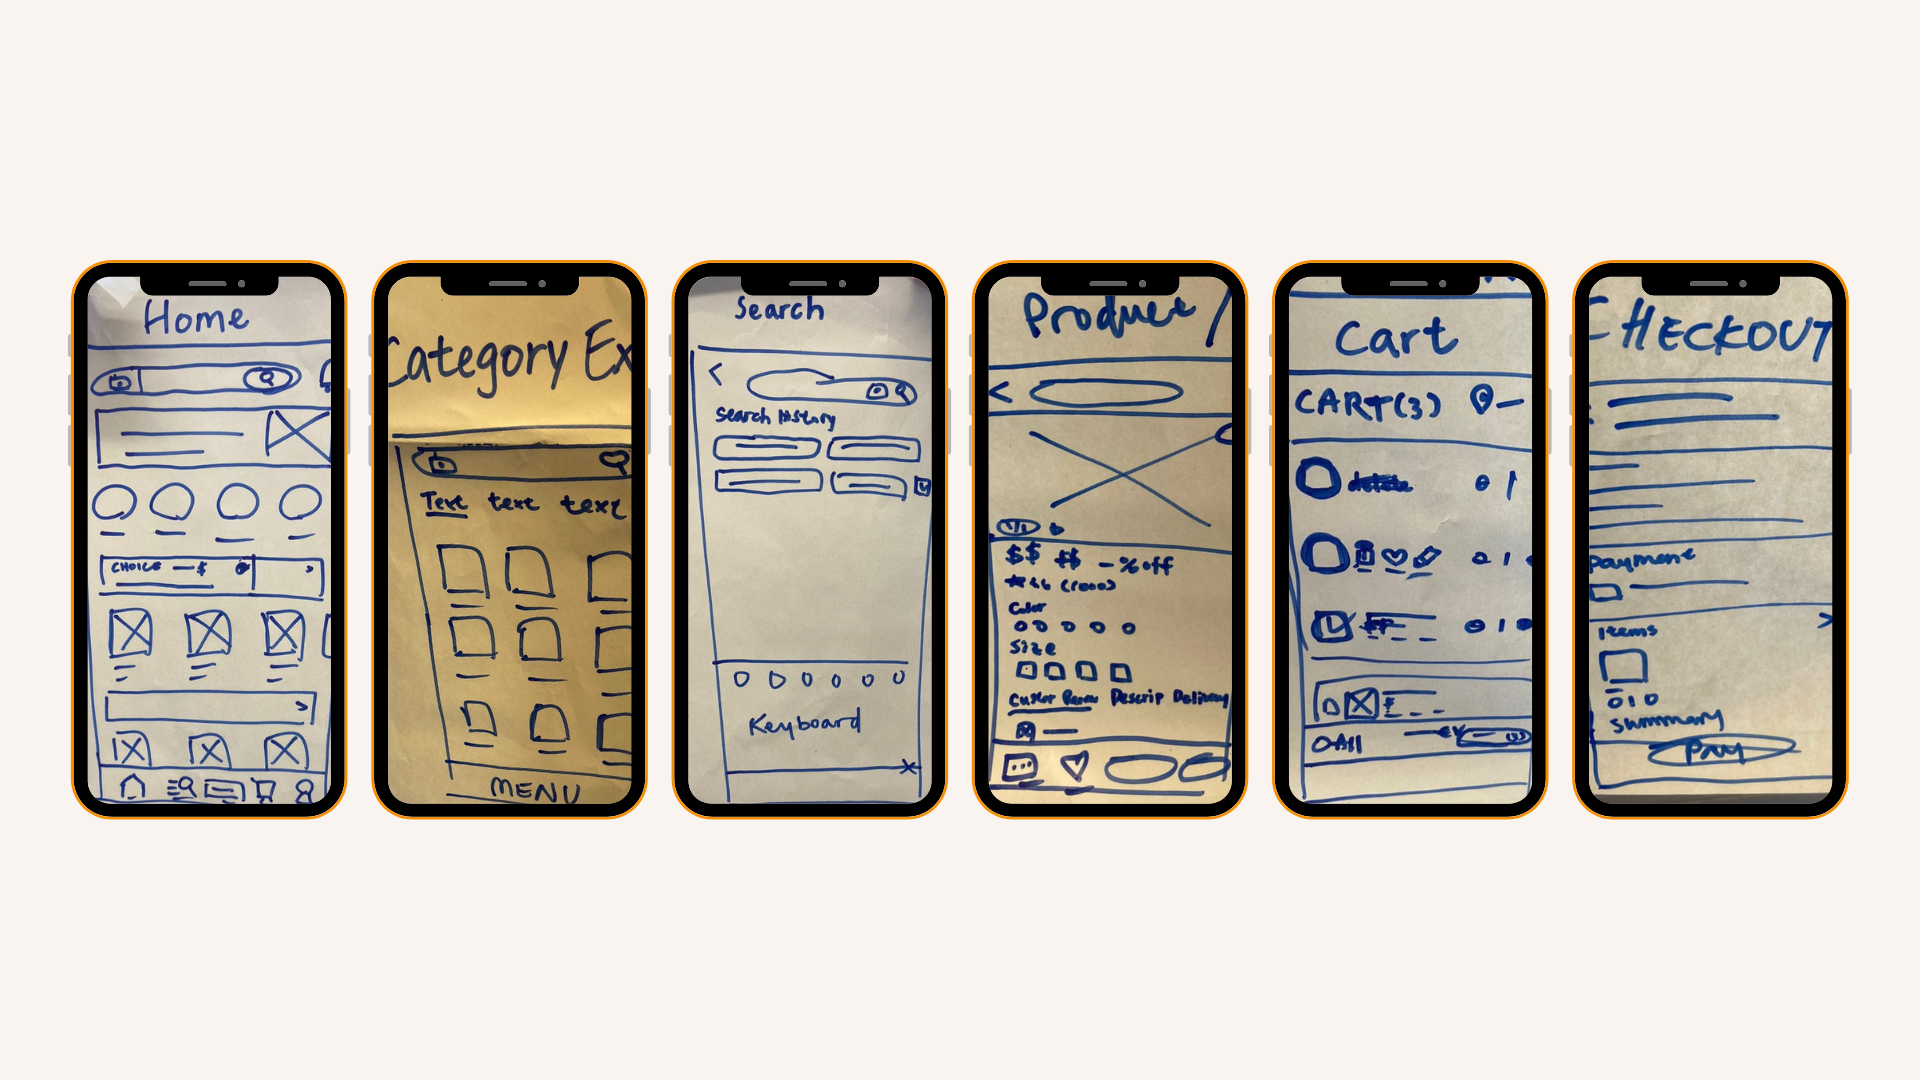 Home
CHOICE $
Category Ex
Text text text
MENU
Search
Search History
Keyboard
Product
1/1
$$ $$ -%off
(1000)
Color
Size
Descrip Delivery
Cart
CART(3)
delete
1
1
1
All
CHECKOUT
payment
Items
010
Summary
Pay